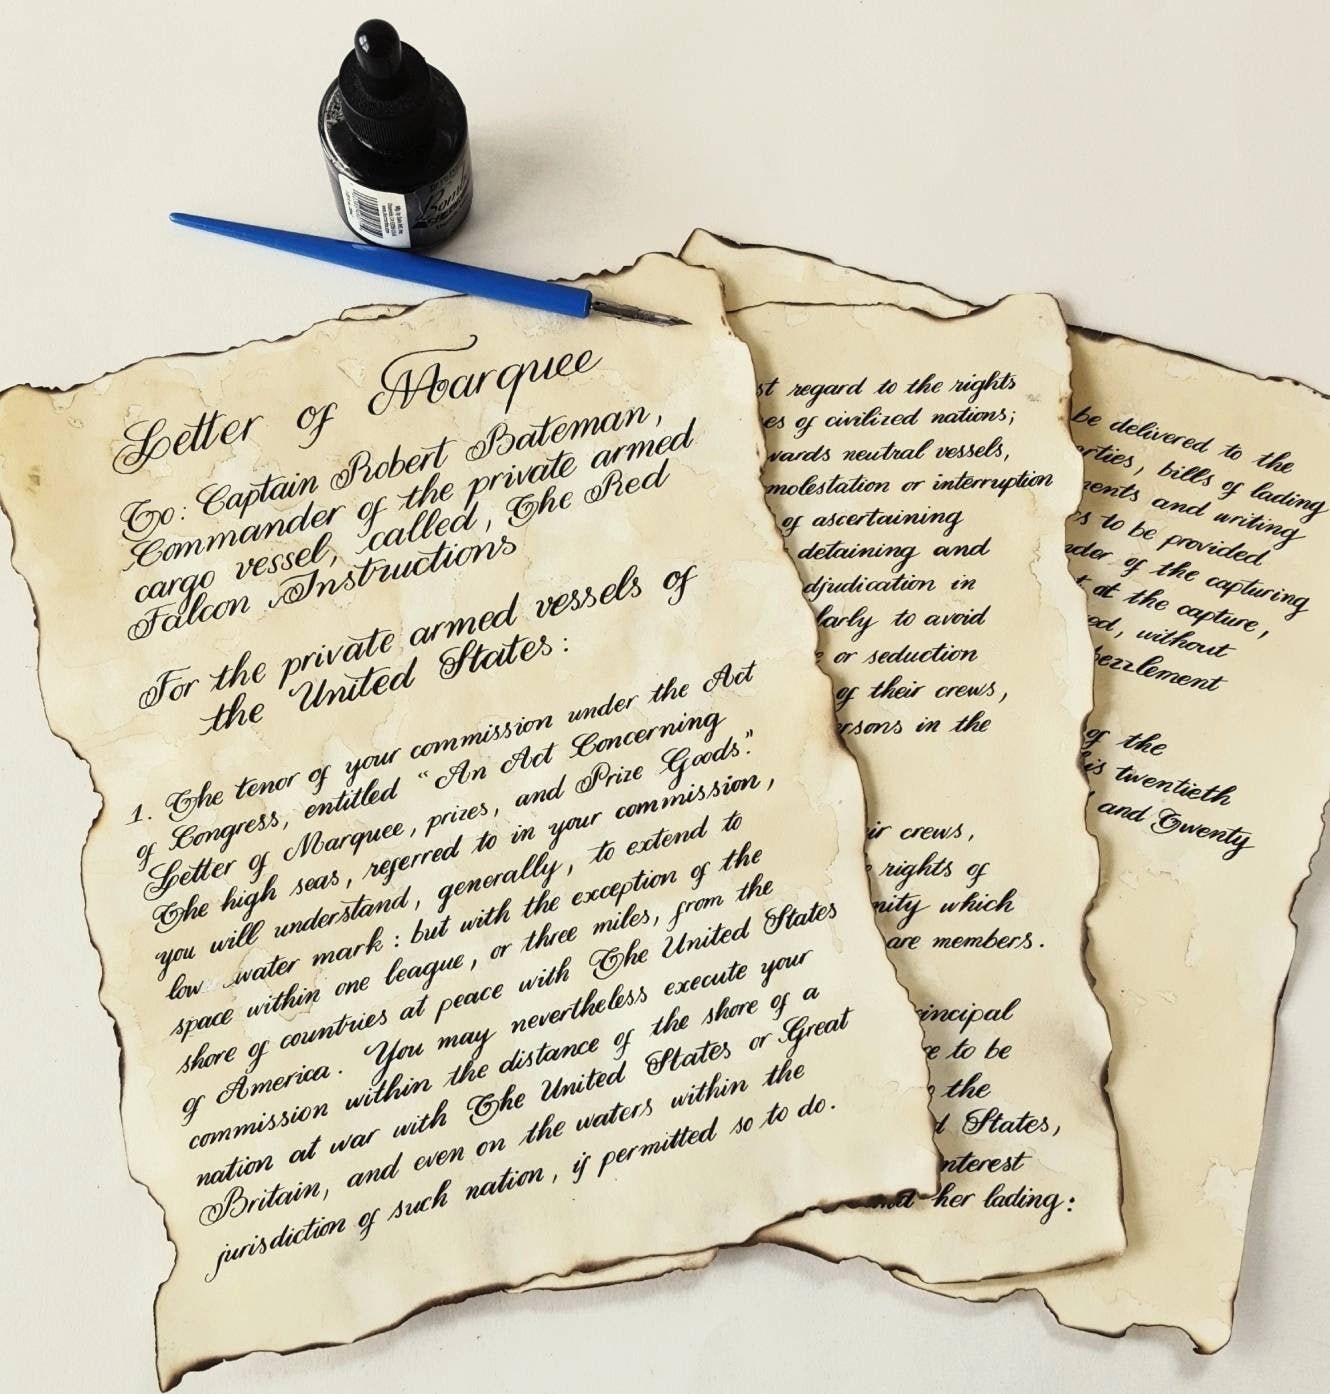 Letter of Marquee
To: Captain Robert Bateman,
Commander of the private armed
cargo vessel, called, The Red
Falcon Instructions
For the private armed vessels of
the United States:
1. The tenor of your commission under the Act
of Congress, entitled "An Act Concerning
Letter of Marquee, prizes, and Prize Goods."
The high seas, referred to in your commission,
you will understand, generally, to extend to
low water mark: but with the exception of the
space within one league, or three miles, from the
shore of countries at peace with The United States
of America. You may nevertheless execute your
commission within the distance of the shore of a
nation at war with The United States or Great
Britain, and even on the waters within the
jurisdiction of such nation, if permitted so to do.
st regard to the rights
es of civilized nations;
wards neutral vessels,
molestation or interruption
of ascertaining
detaining and
djudication in
larly to avoid
or seduction
of their crews,
ersons in the
ir crews,
rights of
nity which
are members.
incipal
e to be
the
d States,
nterest
her lading:
be delivered to the
erties, bills of lading
ments and writing
s to be provided
nder of the capturing
at the capture,
ed, without
bezzlement
of the
is twentieth
and Twenty